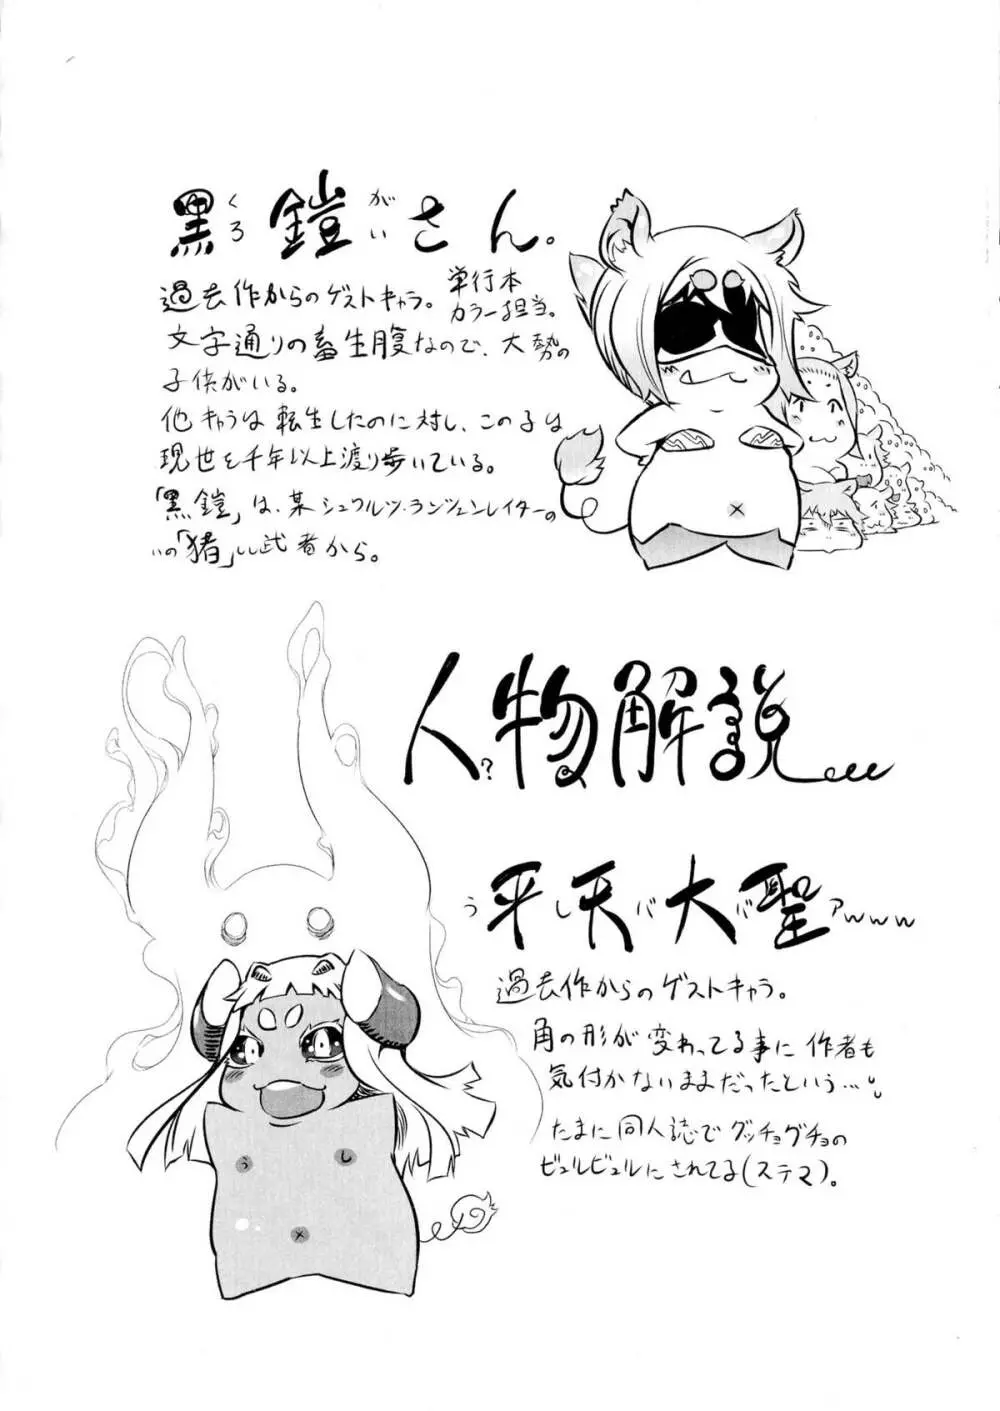 黒鎧さん。
くろ がい
過去作からのゲストキャラ。単行本カラー担当。
文字通りの畜生腹なので、大勢の
子供がいる。
他キャラは転生したのに対し、この子は
現世を千年以上渡り歩いている。
「黒鎧」は、某シュワルツ・ランツェンレイターの
いの「猪」い武者から。
人物解説
?
平天大聖
うしババアwww
過去作からのゲストキャラ。
角の形が変わってる事に作者も
気付かないままだったという…。
たまに同人誌でグッチョグチョの
ビュルビュルにされてる(ステマ)。
う
し